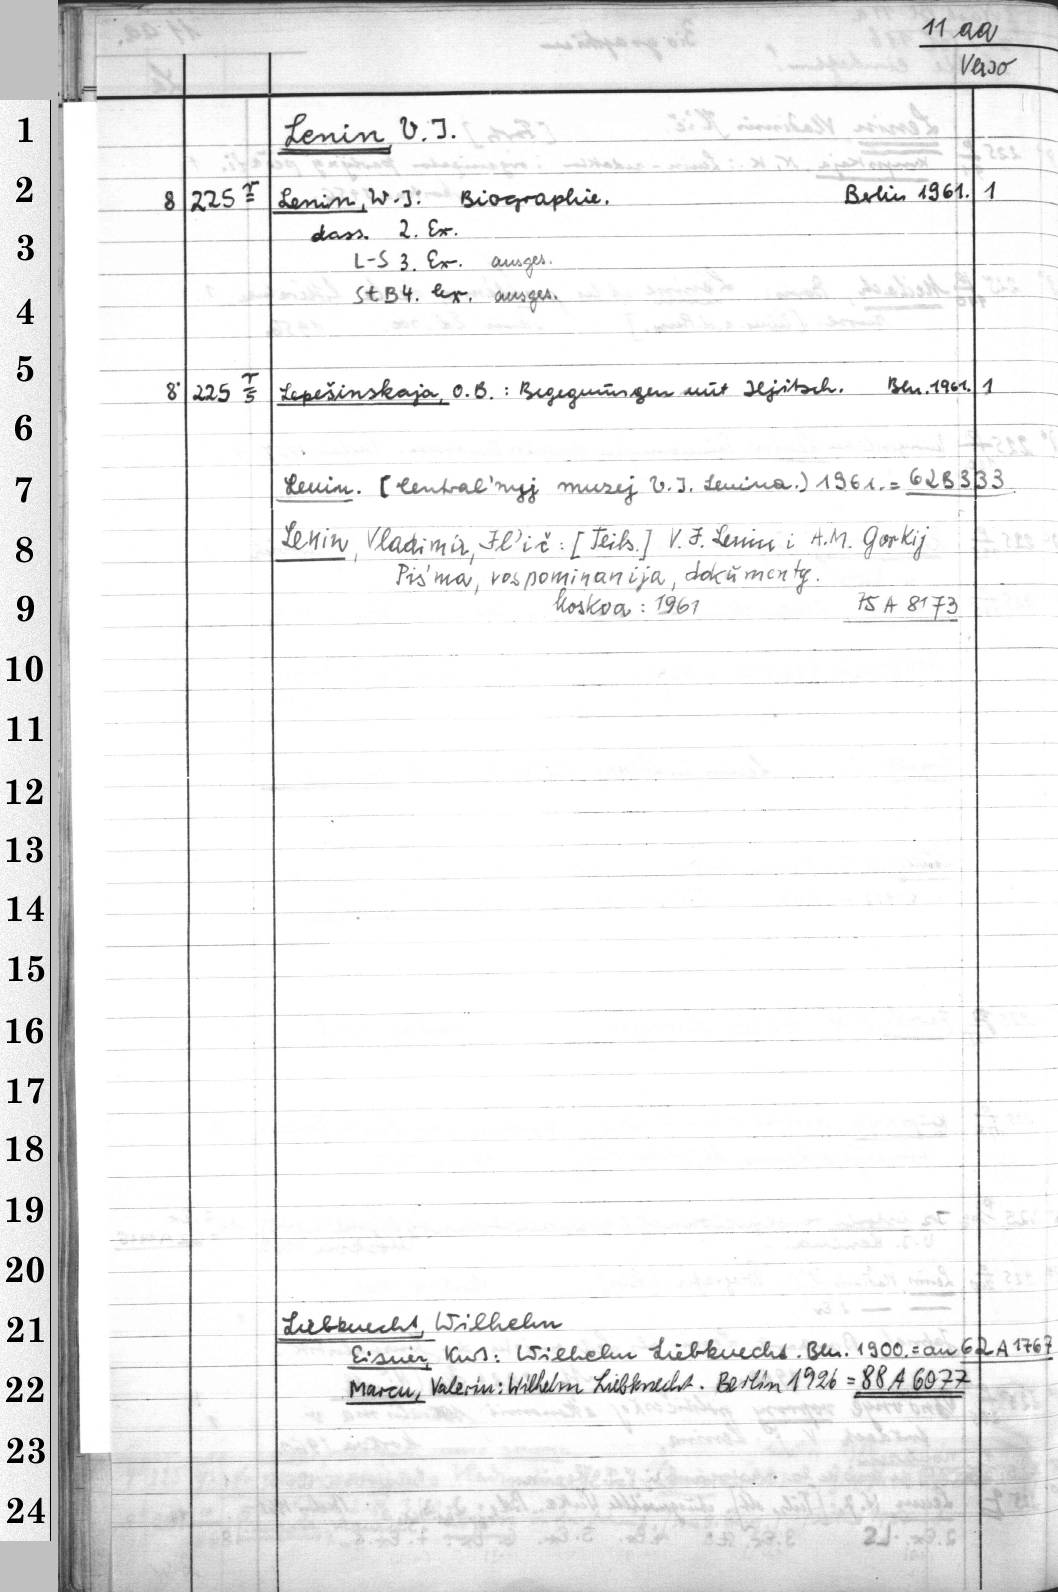 11 aa
Verso
1
Lenin V. I.
2
8 225 r/= Lenin, W. I: Biographie. Berlin 1961. 1
dass. 2. Ex.
3
L-S 3. Ex. ausges.
StB 4. Ex. ausges.
4
5
8° 225 r/5 Lepešinskaja, O. B. : Begegnungen mit Iljitsch. Bln. 1961. 1
6
7
Lenin. (Central'nyj muzej V. I. Lenina.) 1961. = 62B333
8
Lenin, Vladimir, Il'ič : [Teils.] V. I. Lenin i A. M. Gorkij
Pis'ma, vospominanija, dokumenty.
9
Moskva : 1961 75 A 8173
10
11
12
13
14
15
16
17
18
19
20
21
Liebknecht, Wilhelm
Eisner, Kurt: Wilhelm Liebknecht. Bln. 1900. = an 62 A 1767
22
Marcu, Valeriu: Wilhelm Liebknecht. Berlin 1926 = 88 A 6077
23
24